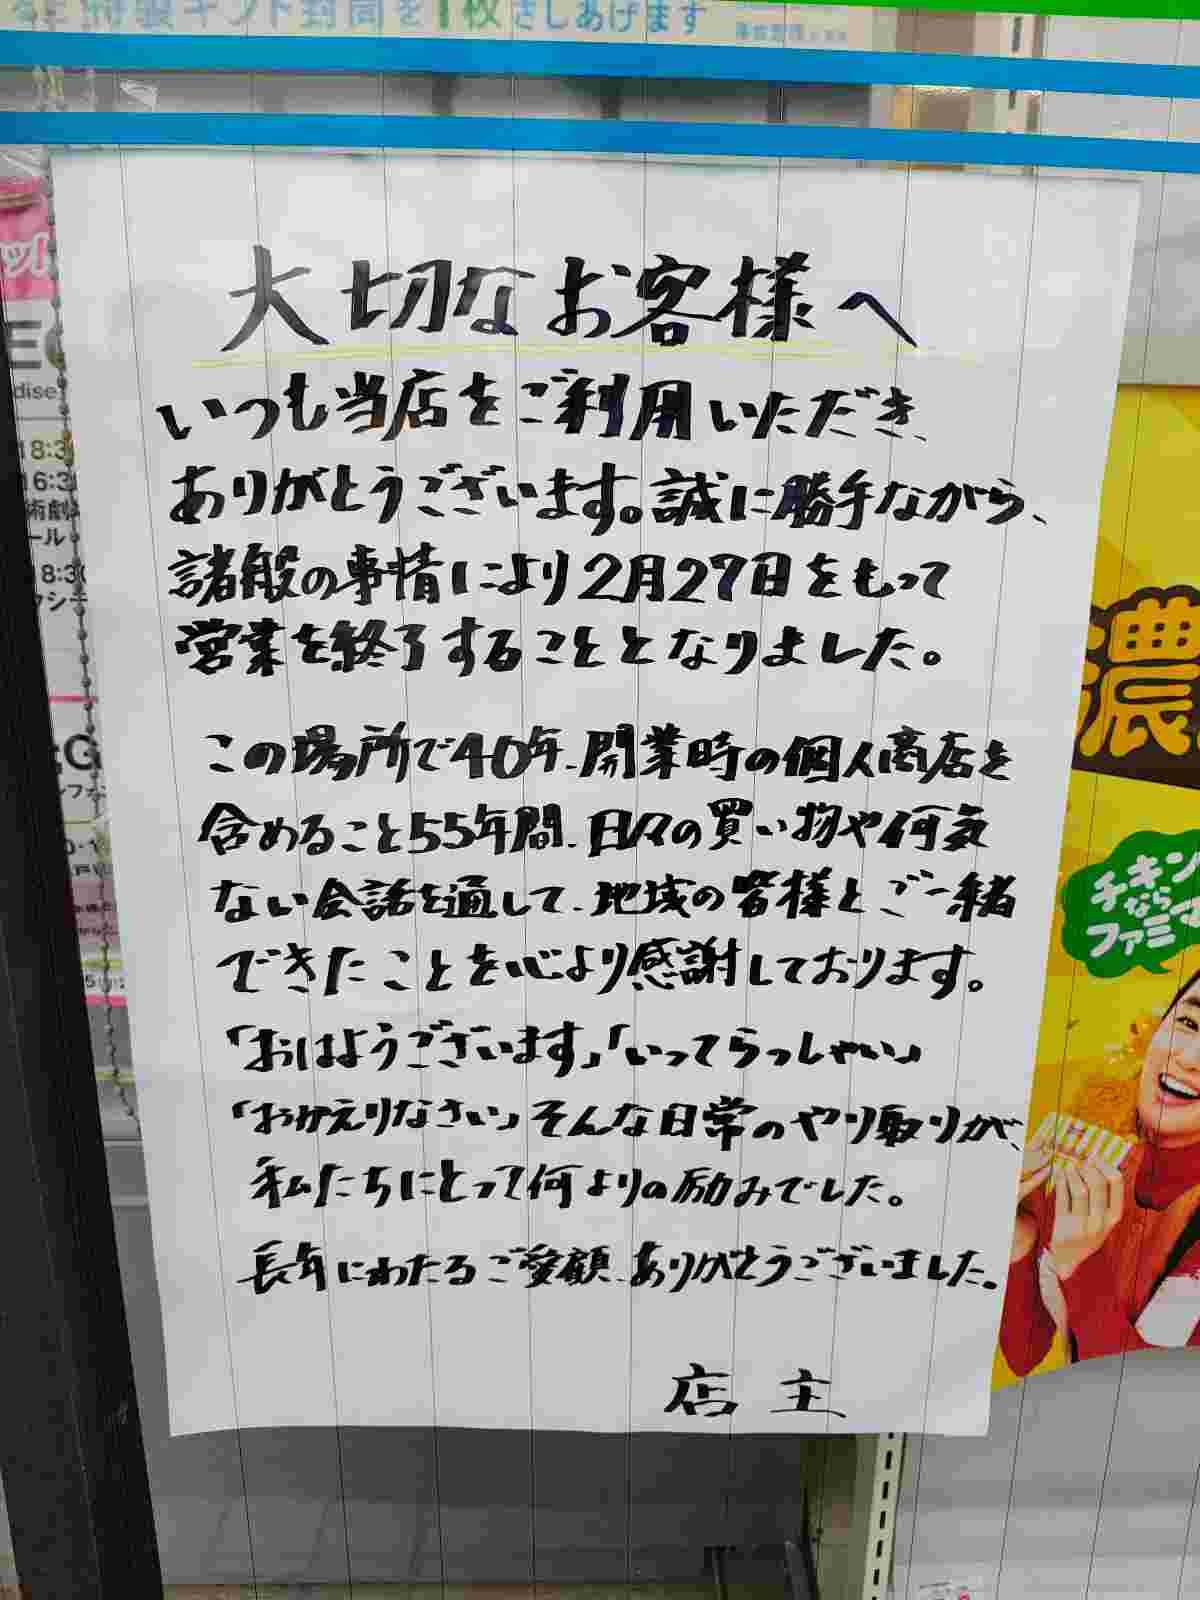 特製ギフト封筒を1枚さしあげます
大切なお客様へ
いつも当店をご利用いただき、
ありがとうございます。誠に勝手ながら、
諸般の事情により2月27日をもって
営業を終了することとなりました。
この場所で40年、開業時の個人商店を
含めること55年間、日々の買い物や何気
ない会話を通して、地域の皆様とご一緒
できたことを心より感謝しております。
「おはようございます」「いってらっしゃい」
「おかえりなさい」そんな日常のやり取りが、
私たちにとって何よりの励みでした。
長年にわたるご愛顧、ありがとうございました。
店主
濃
チキン
なら
ファミマ
18:3
16:3
術劇
ール
18:3